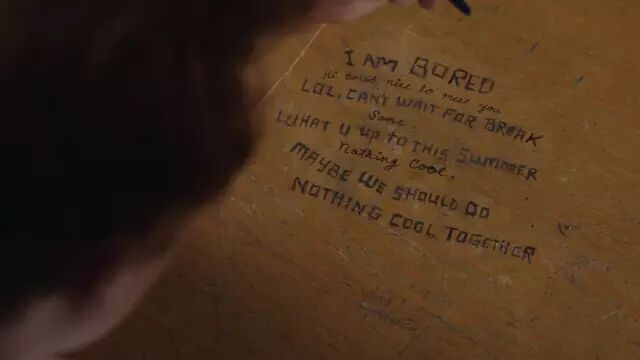 I AM BORED
Hi bored, nice to meet you
LOL, CAN'T WAIT FOR BREAK
Same.
WHAT U UP TO THIS SUMMER
Nothing Cool.
MAYBE WE SHOULD DO
NOTHING COOL TOGETHER